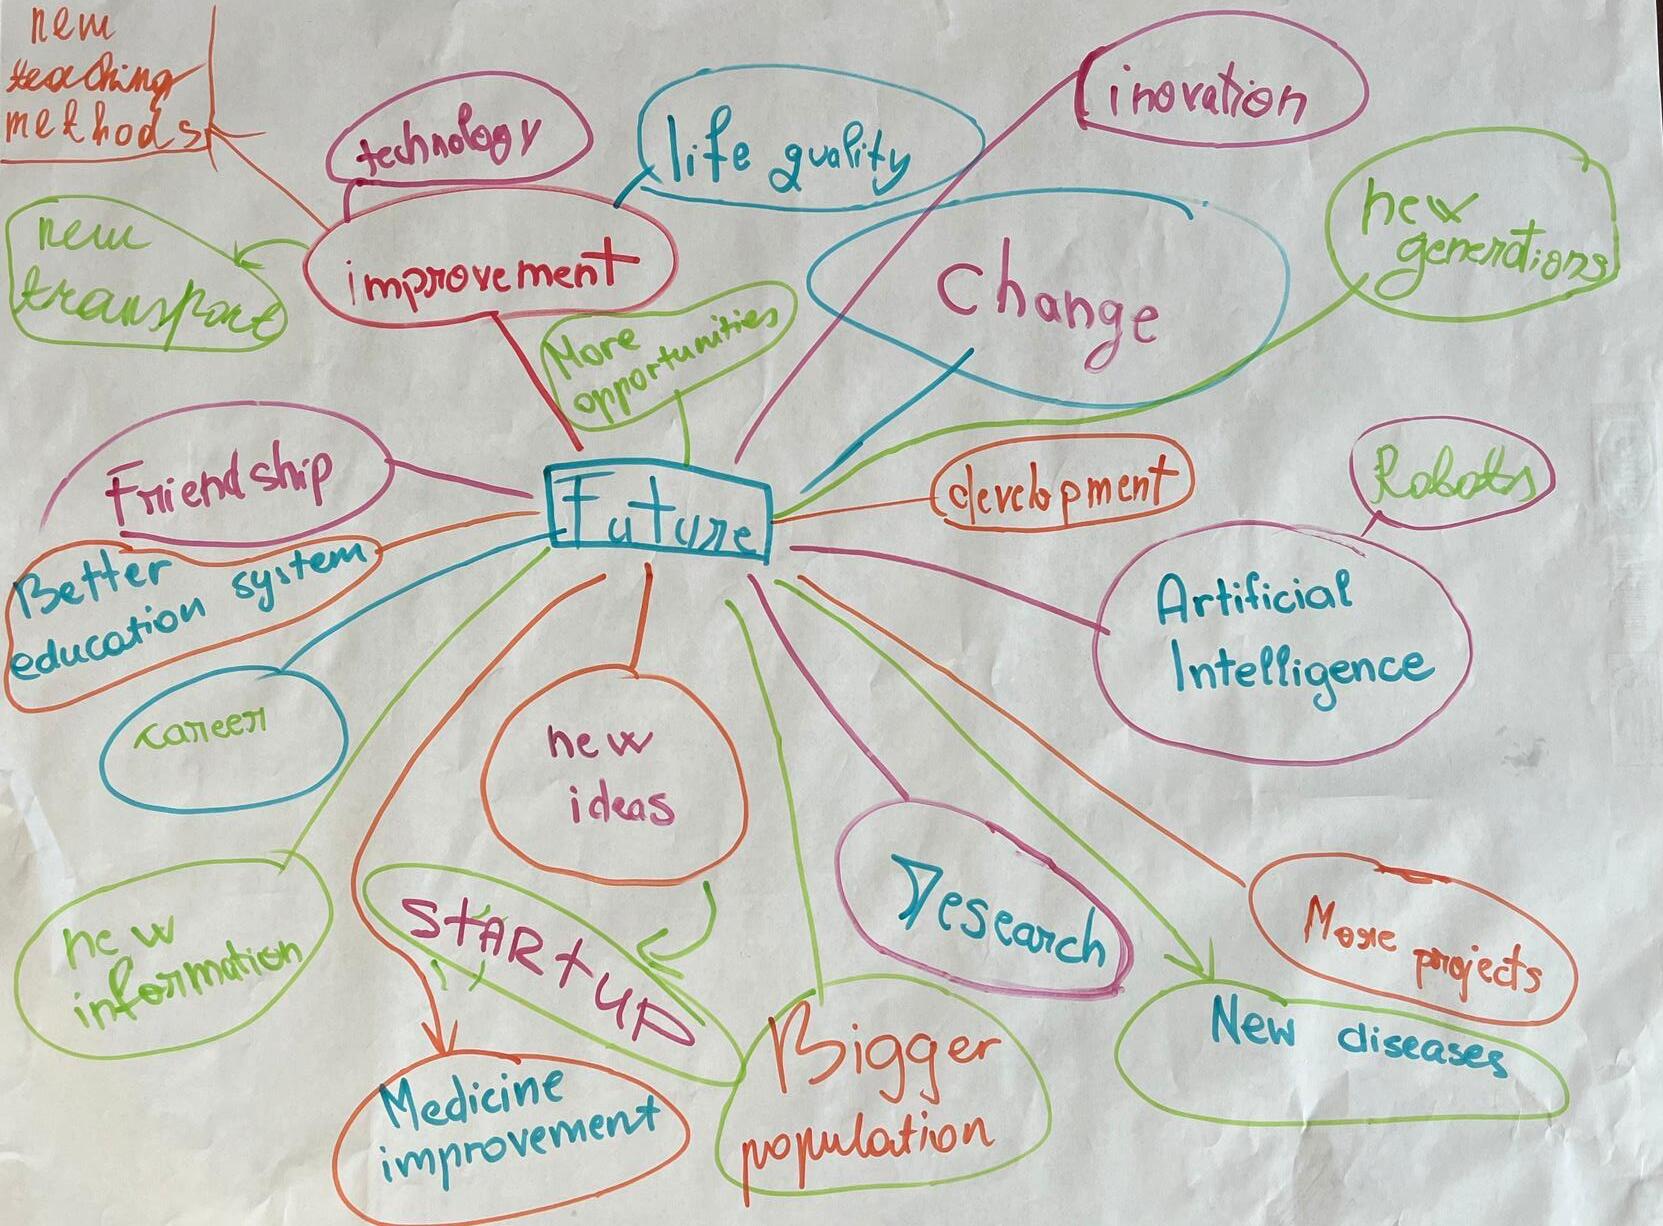 new
teaching
methods
technology
life quality
inovation
new
generations
new
transport
improvement
change
More
opportunities
Friendship
Future
development
Robots
Better
education system
Artificial
Intelligence
career
new
ideas
new
information
STARTUP
research
More
projects
Medicine
improvement
Bigger
population
New diseases